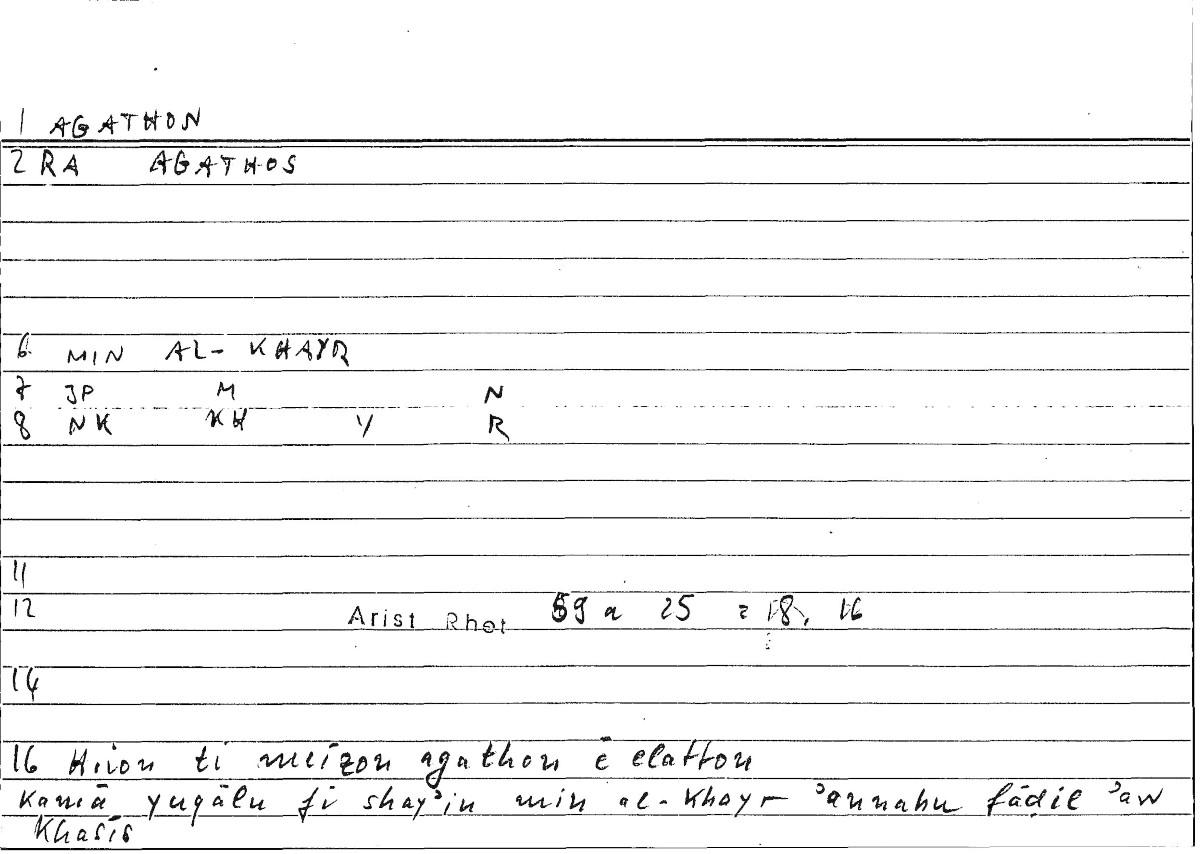 1 AGATHON
2 RA AGATHOS
6 MIN AL- KHAYR
7 JP M N
8 NK KH Y R
11
12 Arist Rhet 59 a 25 = 18, 16
14
16 Hoion ti meizon agathon ē elatton
Kamā yuqālu fī shay'in min al-Khayr ʾannahu fāḍil ʾaw
Khasīs